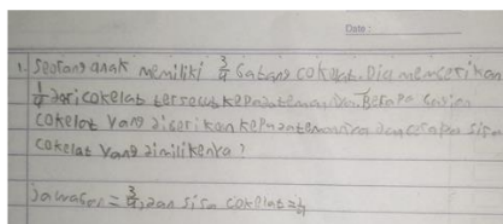 Date :
1. Seorang anak memiliki 3/4 batang cokelat. Dia memberikan
1/4 dari cokelat tersebut kepada temannya. Berapa bagian
cokelat yang diberikan kepada temannya dan berapa sisa
cokelat yang dimilikinya?
Jawaban = 3/4, dan sisa cokelat = 1/4